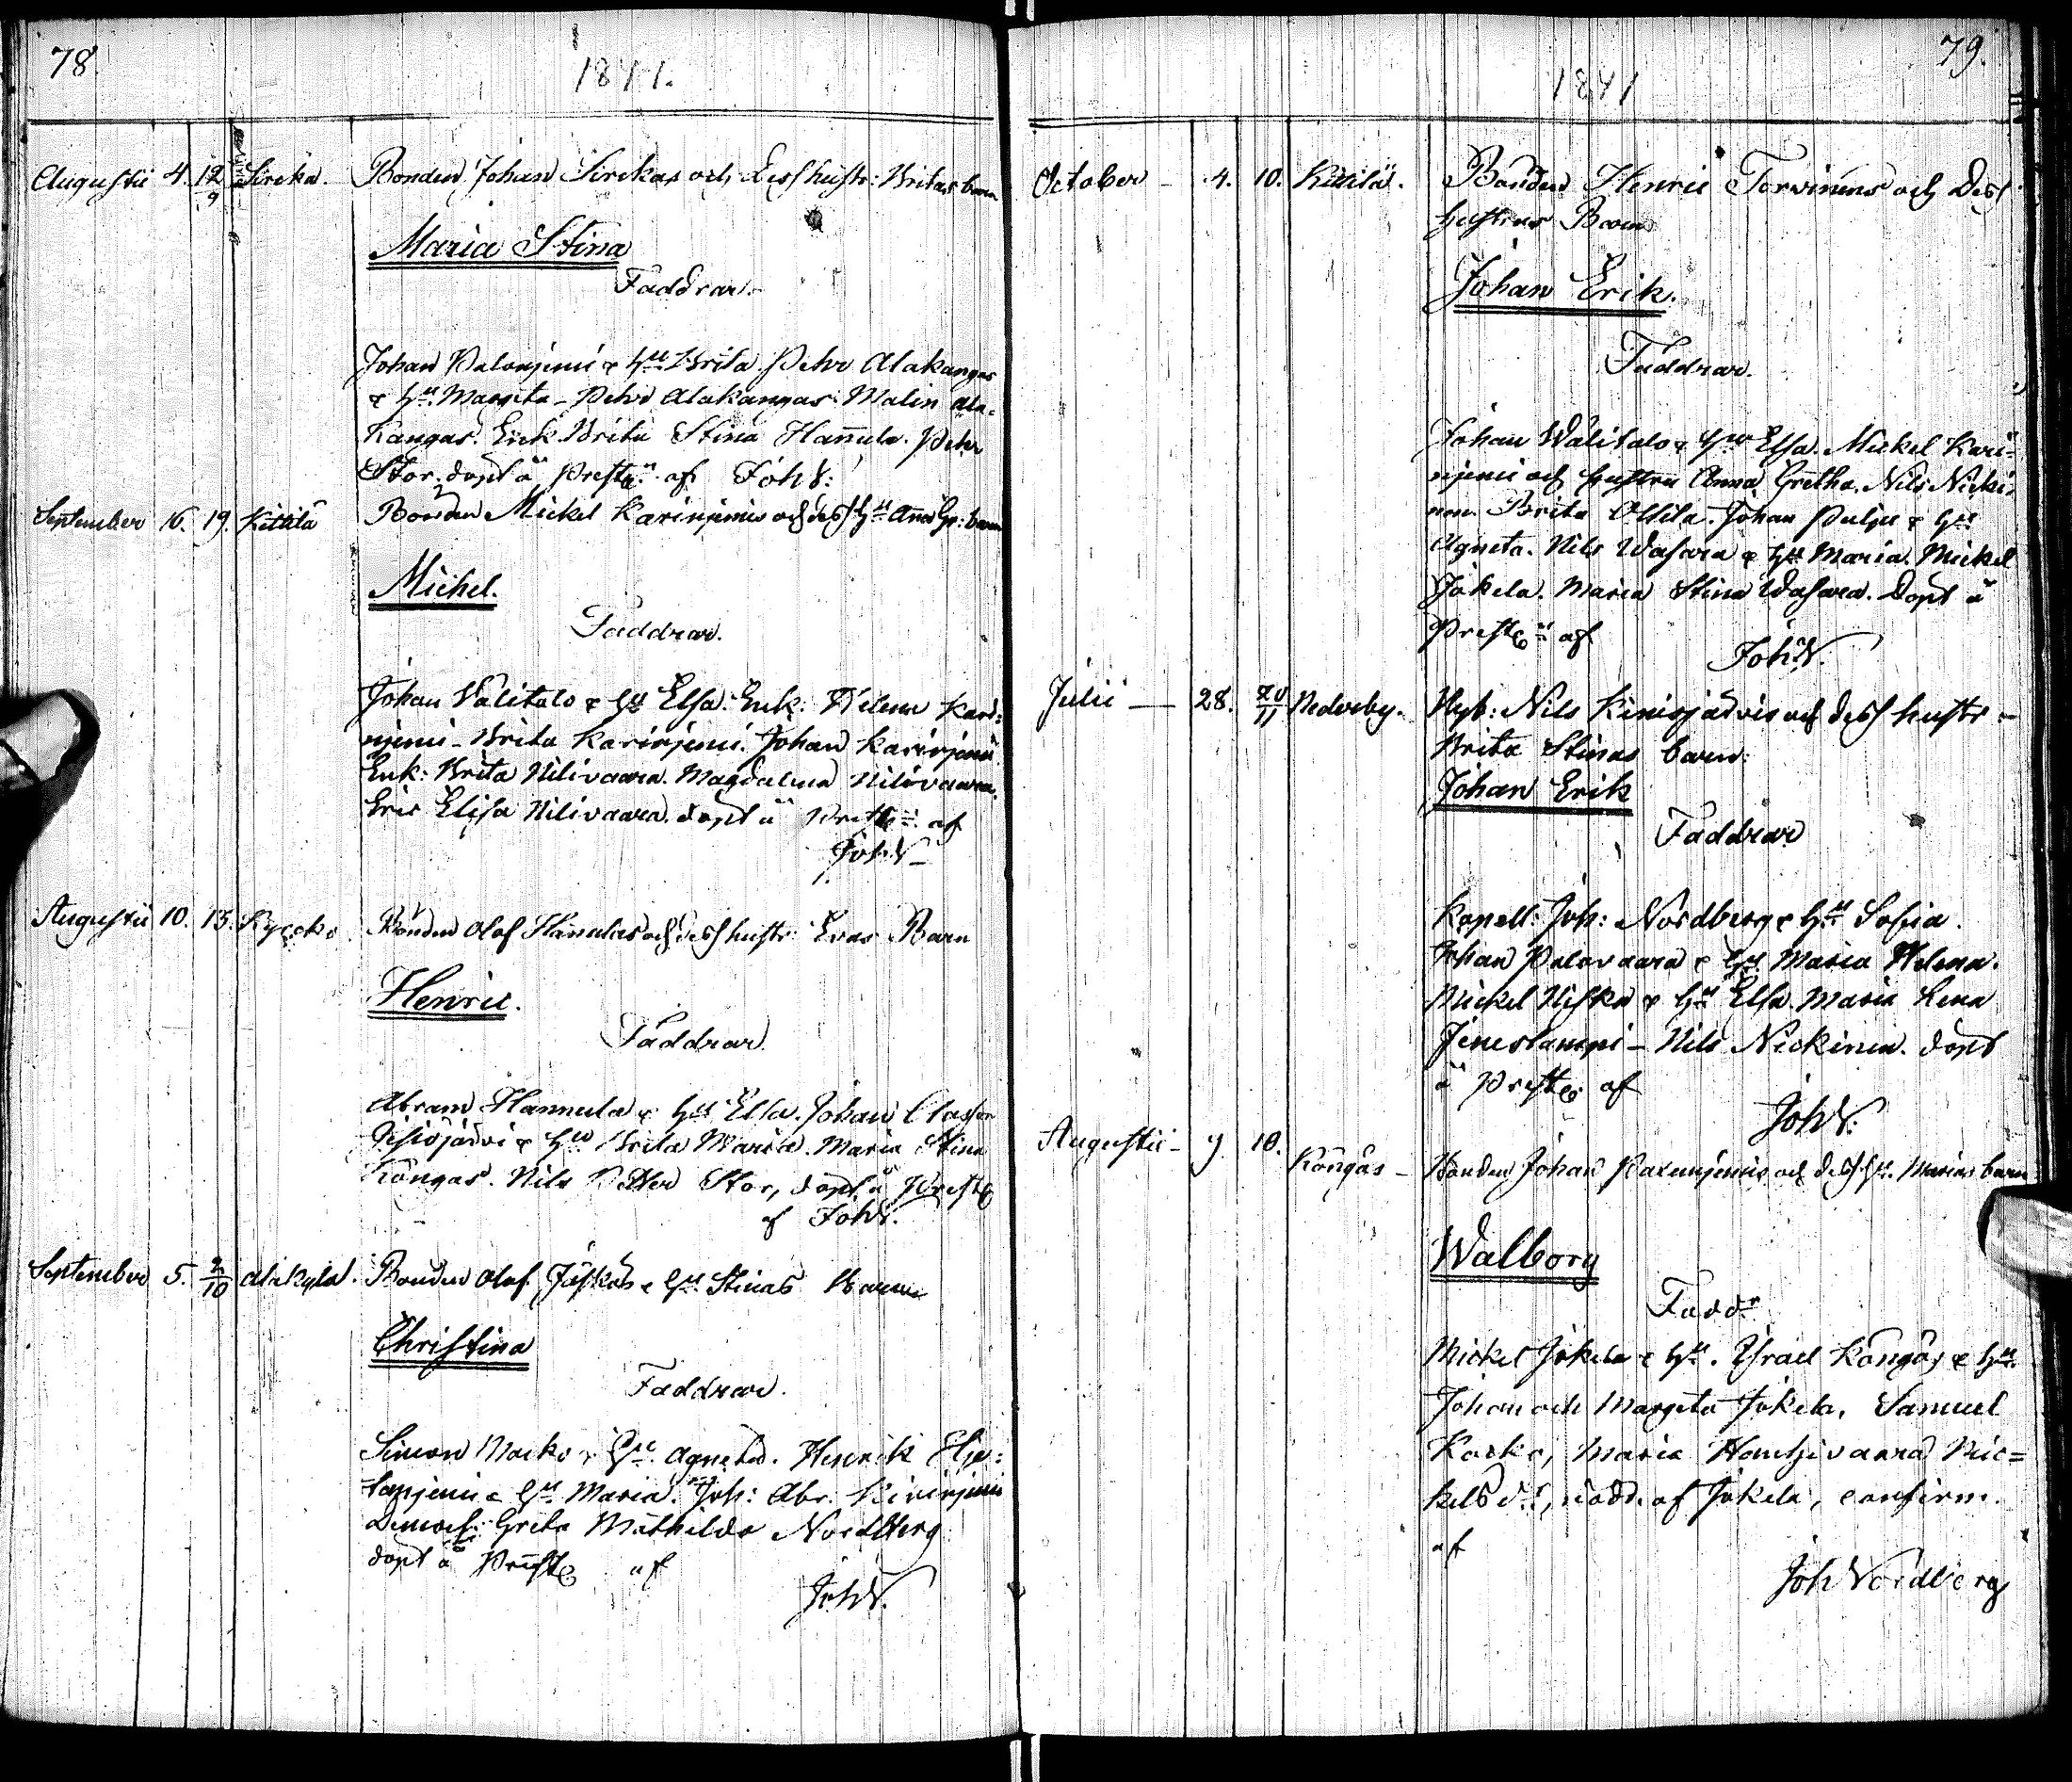 78.
1841.
Augustii 4. 12/9 Sircka. Bonden Johan Sirckas och dess hustr: Britas barn
Maria Stina
Faddrar.
Johan Palonjemi & hu Brita. Pehr Alakangas
& hu Margita - Pehr Alakangas. Malin Ala-
kangas. Enk. Brita Stina Hannula. Pehr
Stor. döpt å Prestg af Joh N.
September 16. 19. Kittilä Bonden Mickel Karinjemis och dess hu Anna Gr: barn
Michel.
Faddrar.
Johan Välitalo & hu Elsa. Enk: Helena Kari-
njemi - Brita Karinjemi. Johan Karinjemi
Enk: Brita Nilivaara. Magdalena Nilivaara.
Eric Elisa Nilivaara. döpt å Prestg af
Joh N
Augustii 10. 13. Kyrckö Bonden Olof Hannulas och dess hustr: Evas Barn
Henric.
Faddrar.
Abram Hannula & hu Elsa. Johan Olasson
Jesiöjärvi & hu Brita Maria. Maria Stina
Köngäs. Nils Petter Stor, döpt å Prestg
af Joh N.
September 5. 2/10 Alakylä. Bonden Olof Jåskos & hu Stinas Barn
Christina
Faddrar.
Simon Nocko & hu Agneta. Henrik
& hu Maria. Joh: Abr. Kivinjemi
Demois: Greta Mathilda Nordberg
döpt å Prestg af
Joh N.
79.
1841
October - 4. 10. Kittilä. Bonden Henric Torvinens och Dess
hustrus Barn
Johan Erik.
Faddrar.
Johan Wälitalo & hu Elsa. Mickel Kari-
njemi och hustru Anna Gretha. Nils Nicki-
nen. Brita Ollila. Johan Pulju & hu
Agneta. Nils Wasara & hu Maria. Mickel
Jokela. Maria Stina Wasara. Döpt å
Prestg af
Joh N.
Julii - 28. 20/11 Nederby. Nyb: Nils Kinisjärvis och dess hustr
Brita Stinas barn.
Johan Erik
Faddrar
Kapell: Joh: Nordberg & hu Sofia.
Johan Palovaara & hu Maria Helena.
Mickel Niska & hu Elsa. Maria Lena
Jeneslampi - Nils Nickinen. döpt
å Prestg af
Joh N.
Augustii - 9. 10. Köngäs - Bonden Johan och dess hu Marias barn
Walborg
Fadd
Mickel Jokela & hu. Israel Köngäs & hu
Johan och Margeta Jokela, Samuel
Kocko, Maria Hanhivaara Mic=
kelsdr, nöddr. af Jokela, confirm.
af
Joh Nordberg